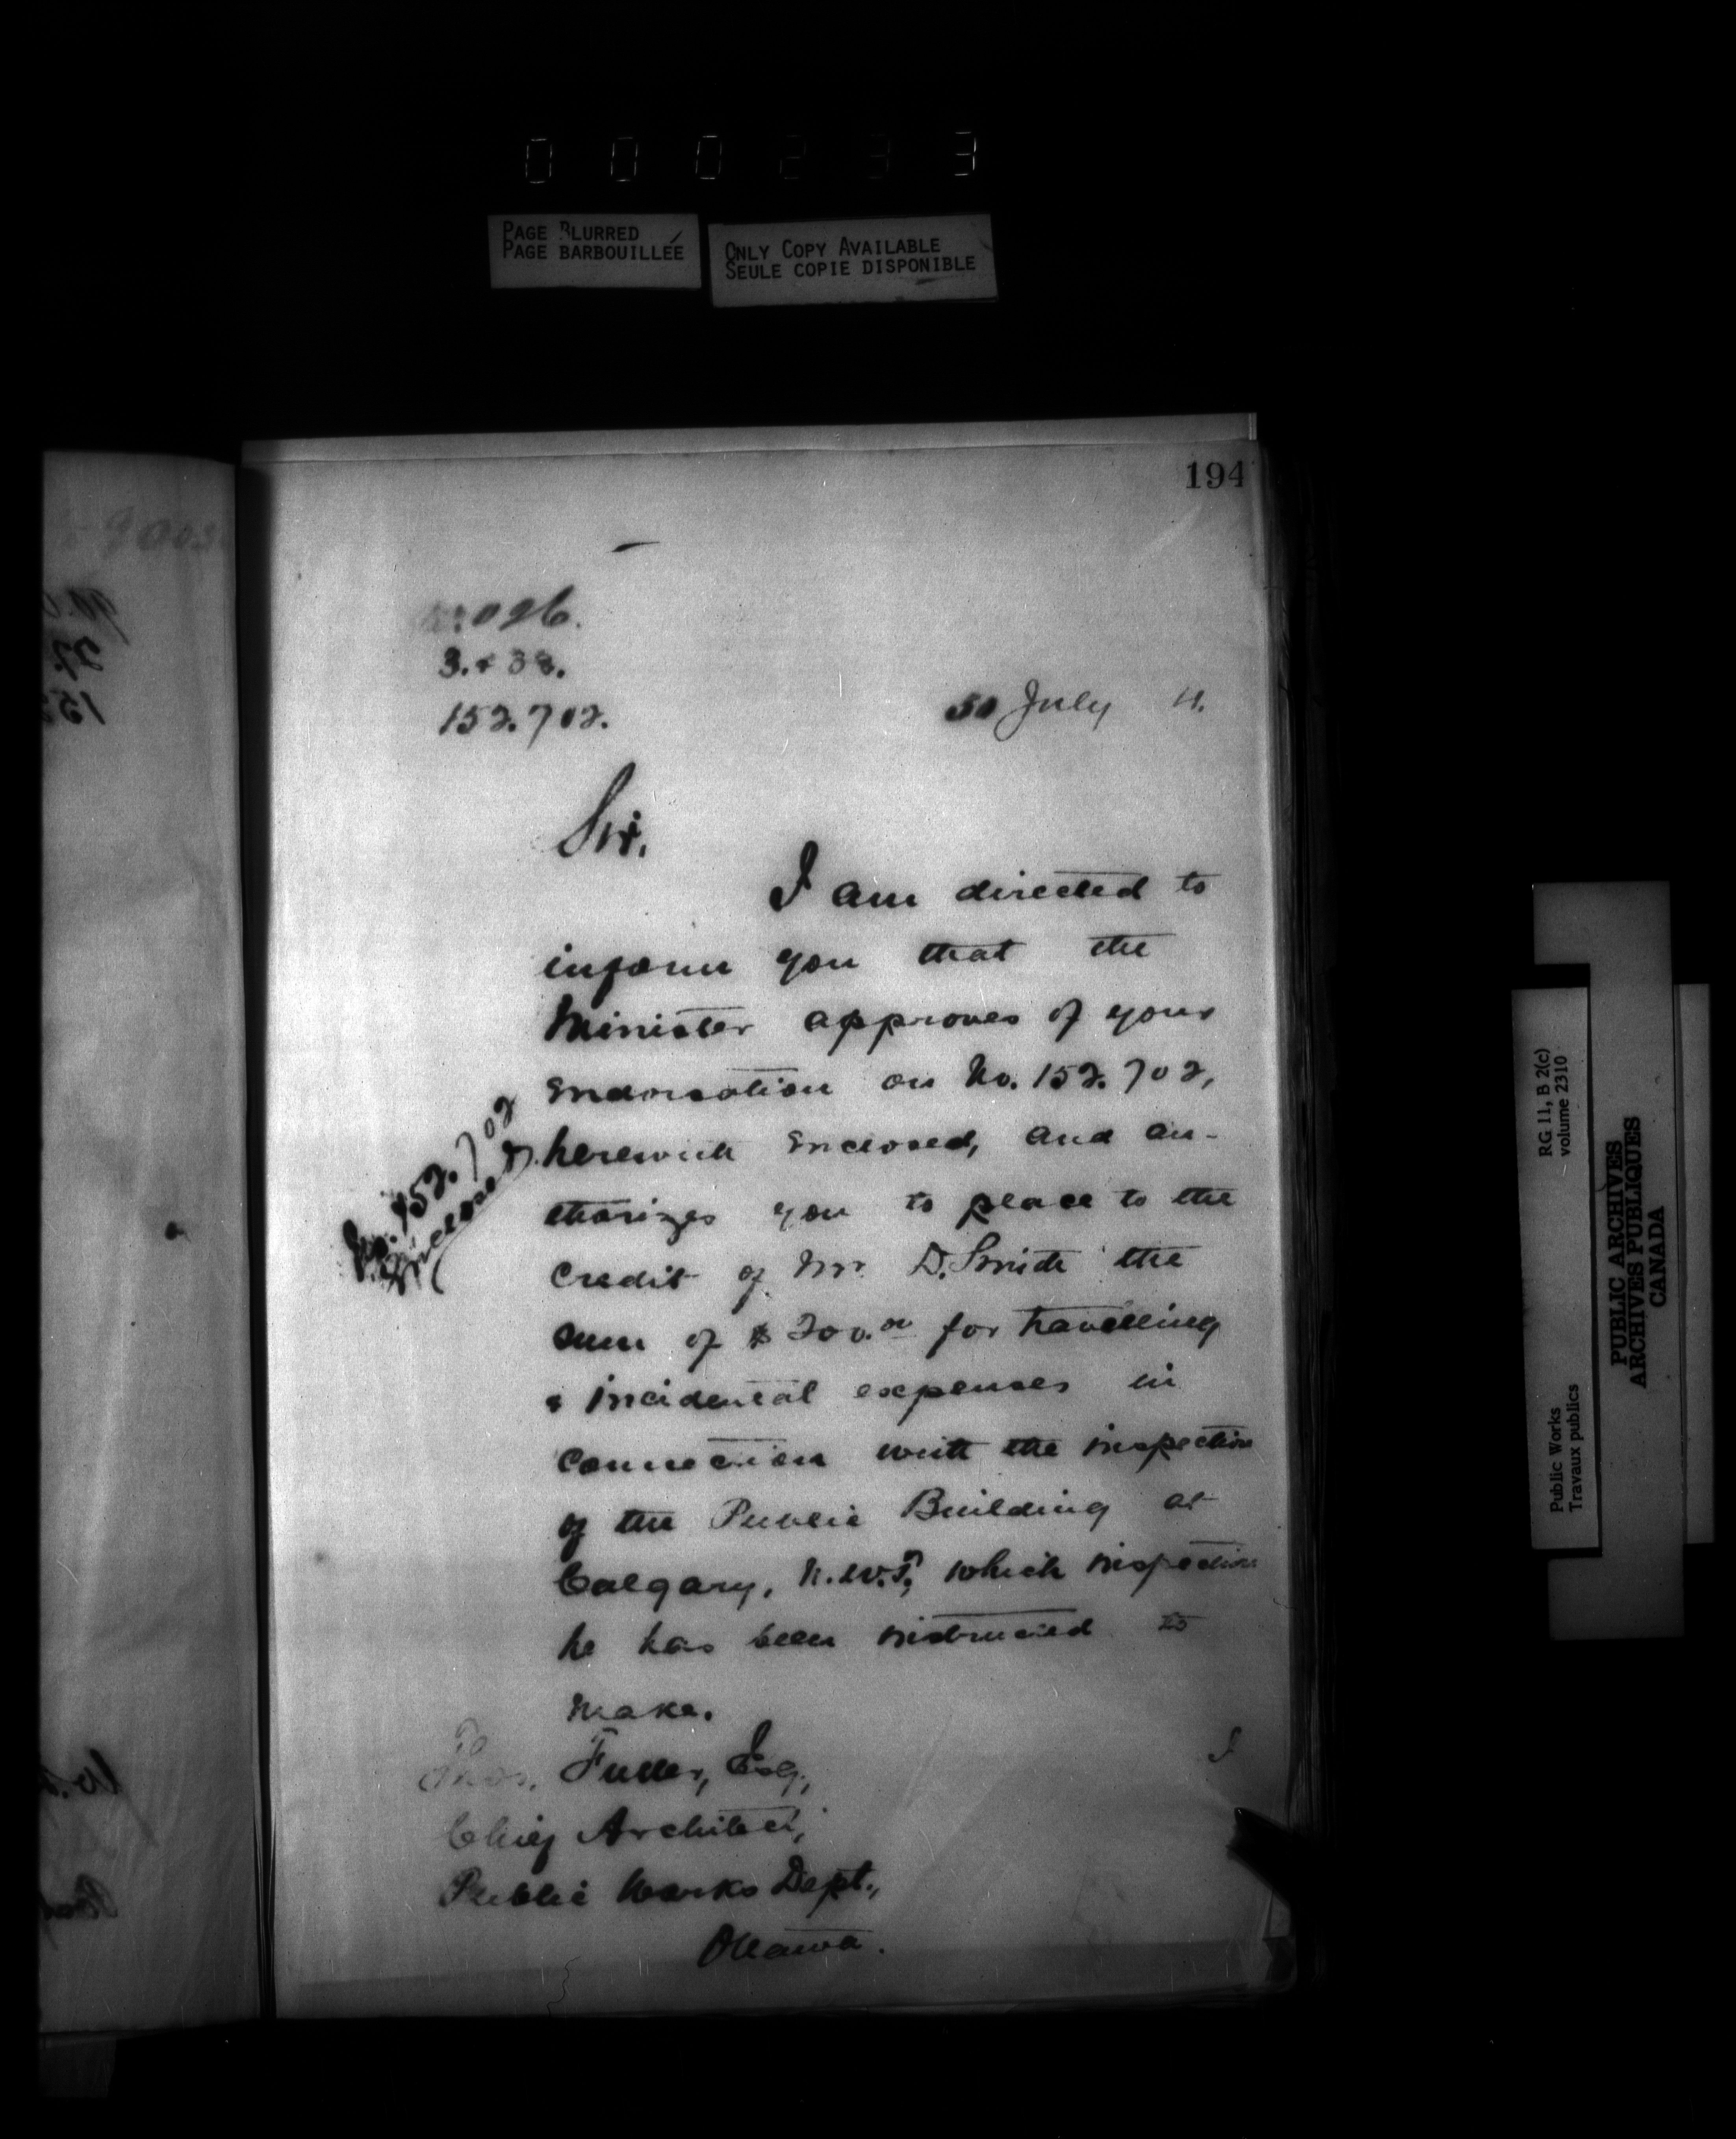 000233
PAGE BLURRED
PAGE BARBOUILLÉE
ONLY COPY AVAILABLE
SEULE COPIE DISPONIBLE
194
152.702.
30 July
Sir,
I am directed to
inform you that the
Minister approves of your
endorsation on No. 152.702,
herewith enclosed, and au-
thorizes you to place to the
credit of Mr. D. Smith the
sum of $200.00 for travelling
& incidental expenses in
connection with the inspection
of the Public Building at
Calgary, N.W.T., which inspection
he has been instructed to
make.
No. 152.702
Enclosed
I
Thos. Fuller, Esq.,
Chief Architect,
Public Works Dept.,
Ottawa.
RG 11, B 2(c)
volume 2310
Public Works
Travaux publics
PUBLIC ARCHIVES
ARCHIVES PUBLIQUES
CANADA